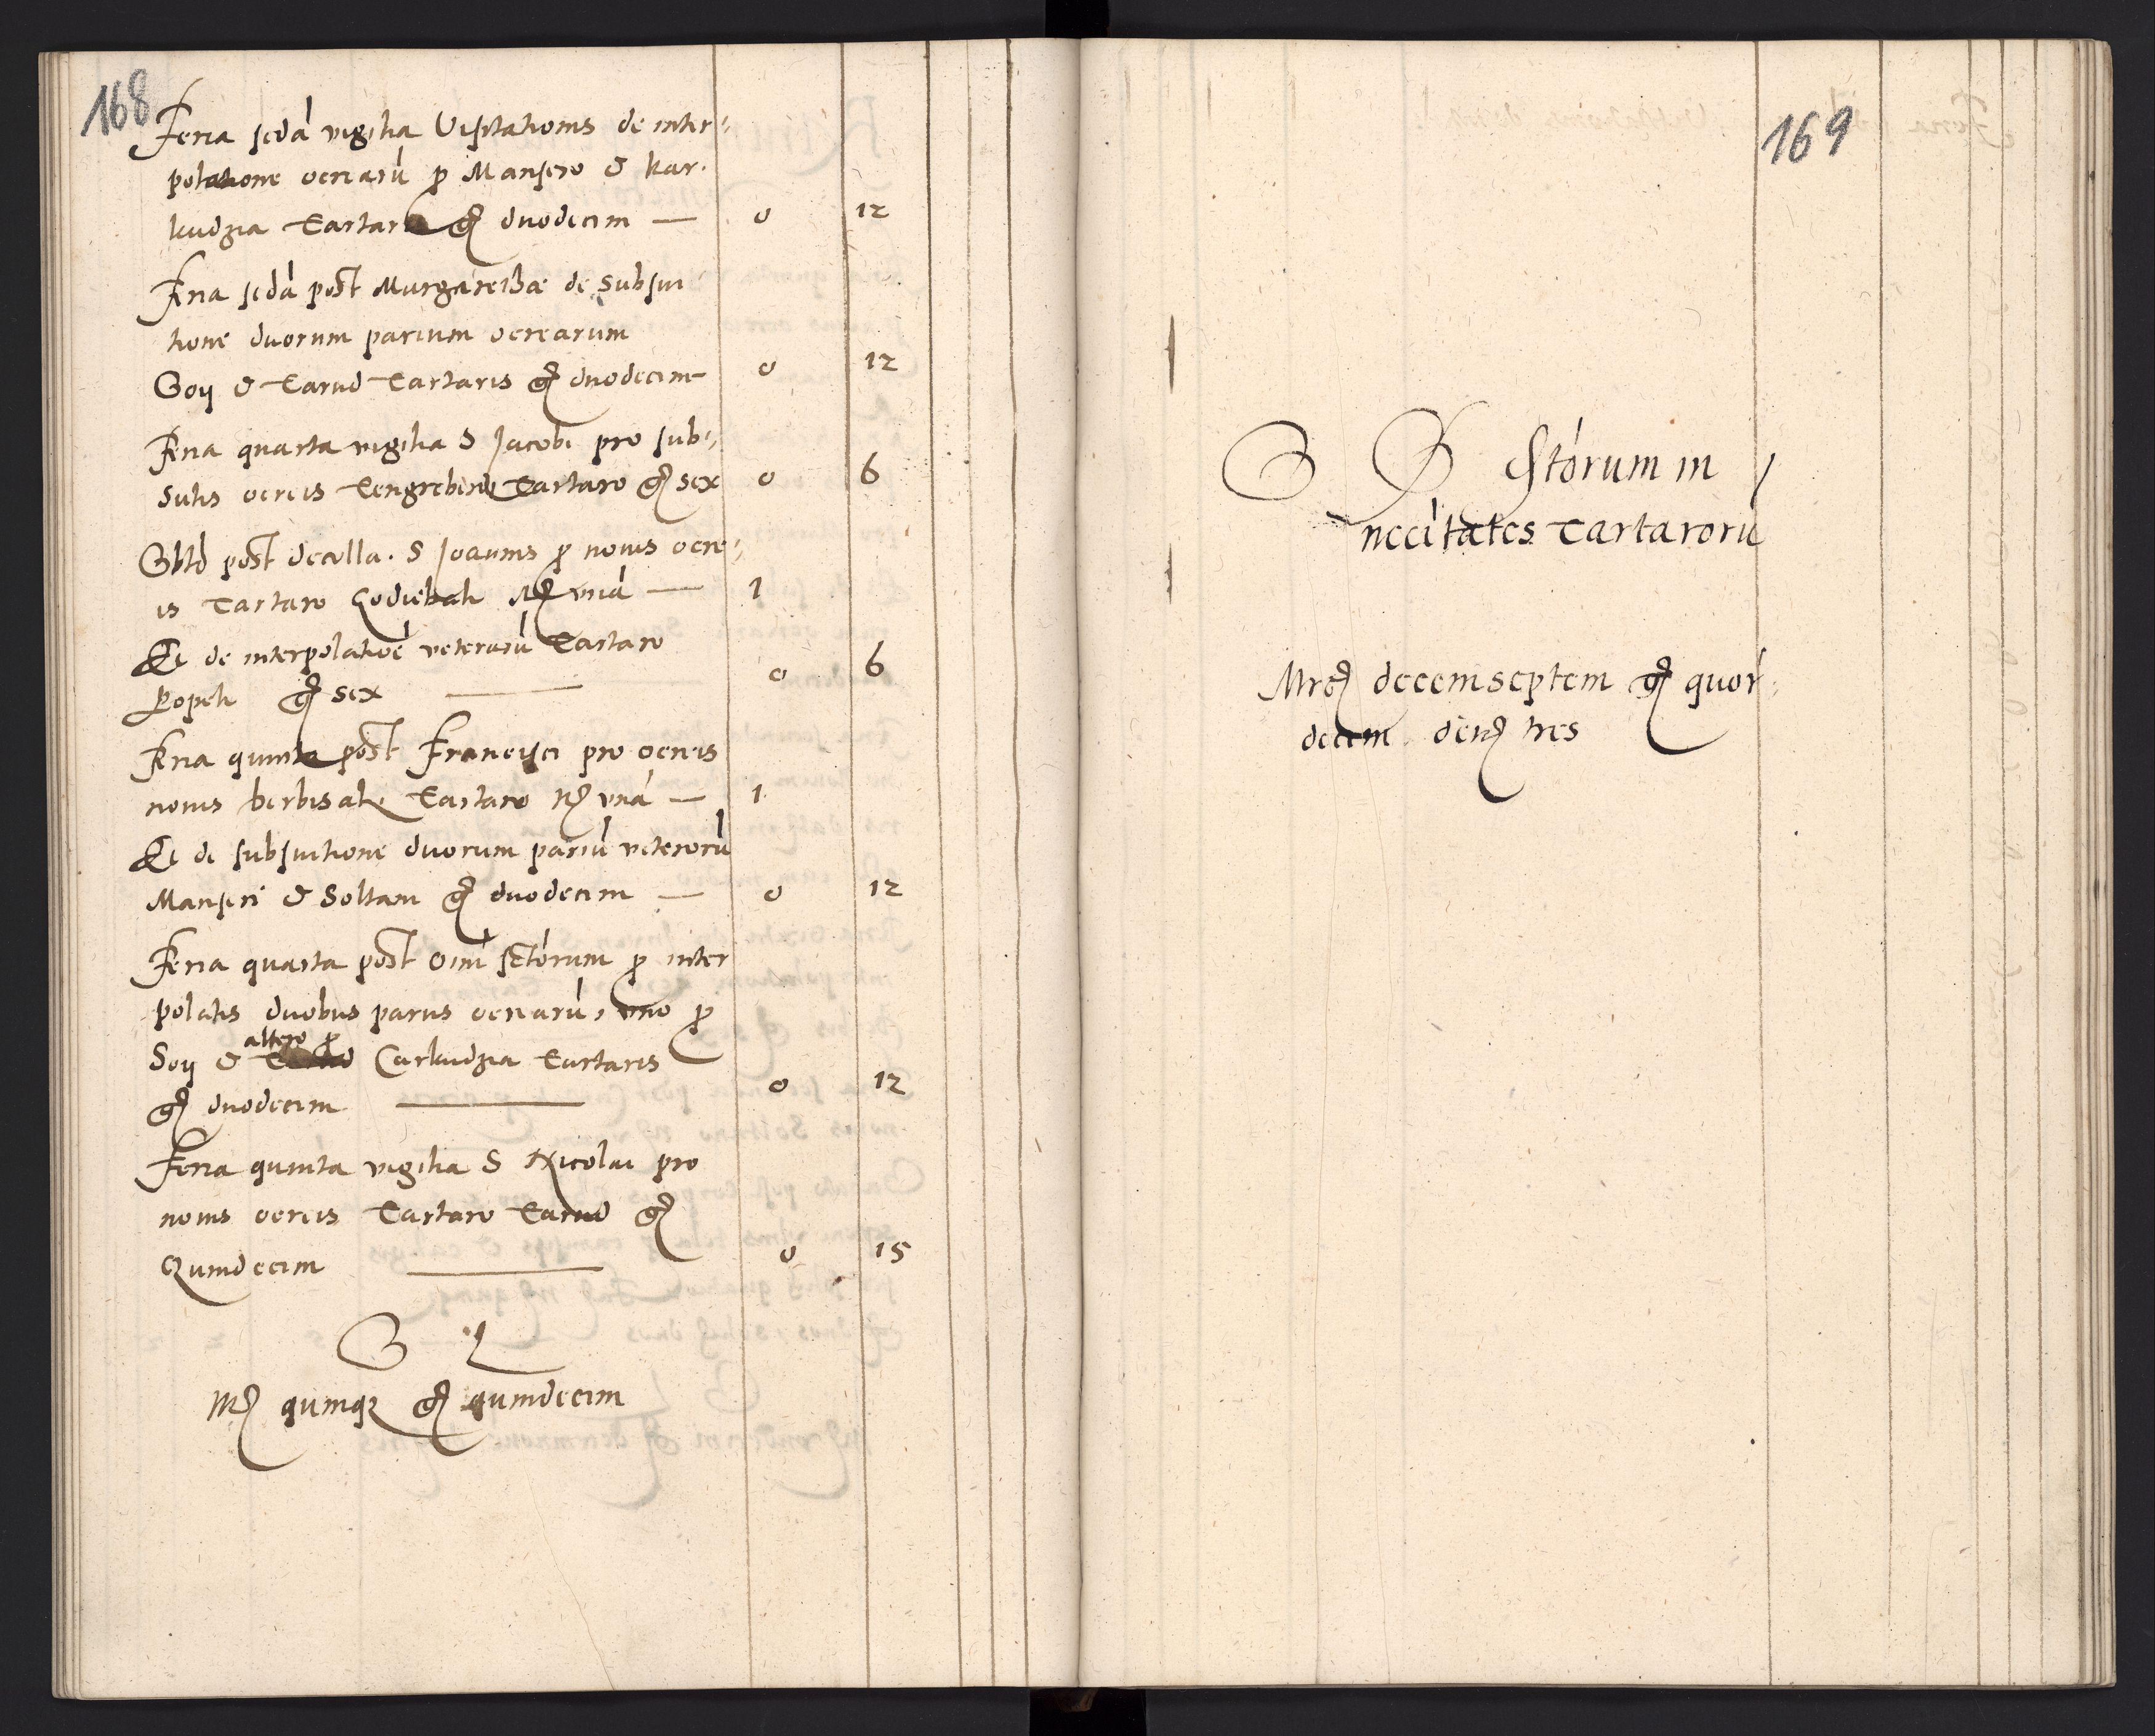 168
Feria scdá vigilia Visitationis de inter⸗
polatione ocrearú p Mansero & kar⸗
kudzia Tartar gͬ duodecim — 0 12
Feria scdá post Margarethae de subsui
tione duorum parium ocrearum
Goÿ & Tarud Tartaris gͬ duodecim — 0 12
Feria quarta vigilia S Jacobi pro sub⸗
sutis ocreis Tengrebirdi Tartaro gͬ sex 0 6
Sbtō post decolla. S Joannis p novis ocre⸗
is Tartaro Codiebah Mͬ vná — 1
Et de interpolatioē veterarú Tartaro
Popeli gͬ sex — 0 6
Feria quinta post Francisci pro ocreis
novis birbisali Tartaro Mͬ vná — 1
Et de subsuitione duorum pariú veterorú
Manseri & Soltan gͬ duodecim — 0 12
Feria quarta post oim sctórum p inter
polatis duobus parns ocrearú, vno p
altero p
Soÿ & Carkudzia Tartaris
gͬ duodecim — 0 12
Feria quinta vigilia S Nicolai pro
novis ocreis Tartaro Tarud gͬ
Quindecim — 0 15
S L
Mͬ quinqȝ gͬ quindecim
169
S D stórum in
necitates Tartarorú
Mrͨ decemseptem gͬ quor⸗
decim denͬ tres